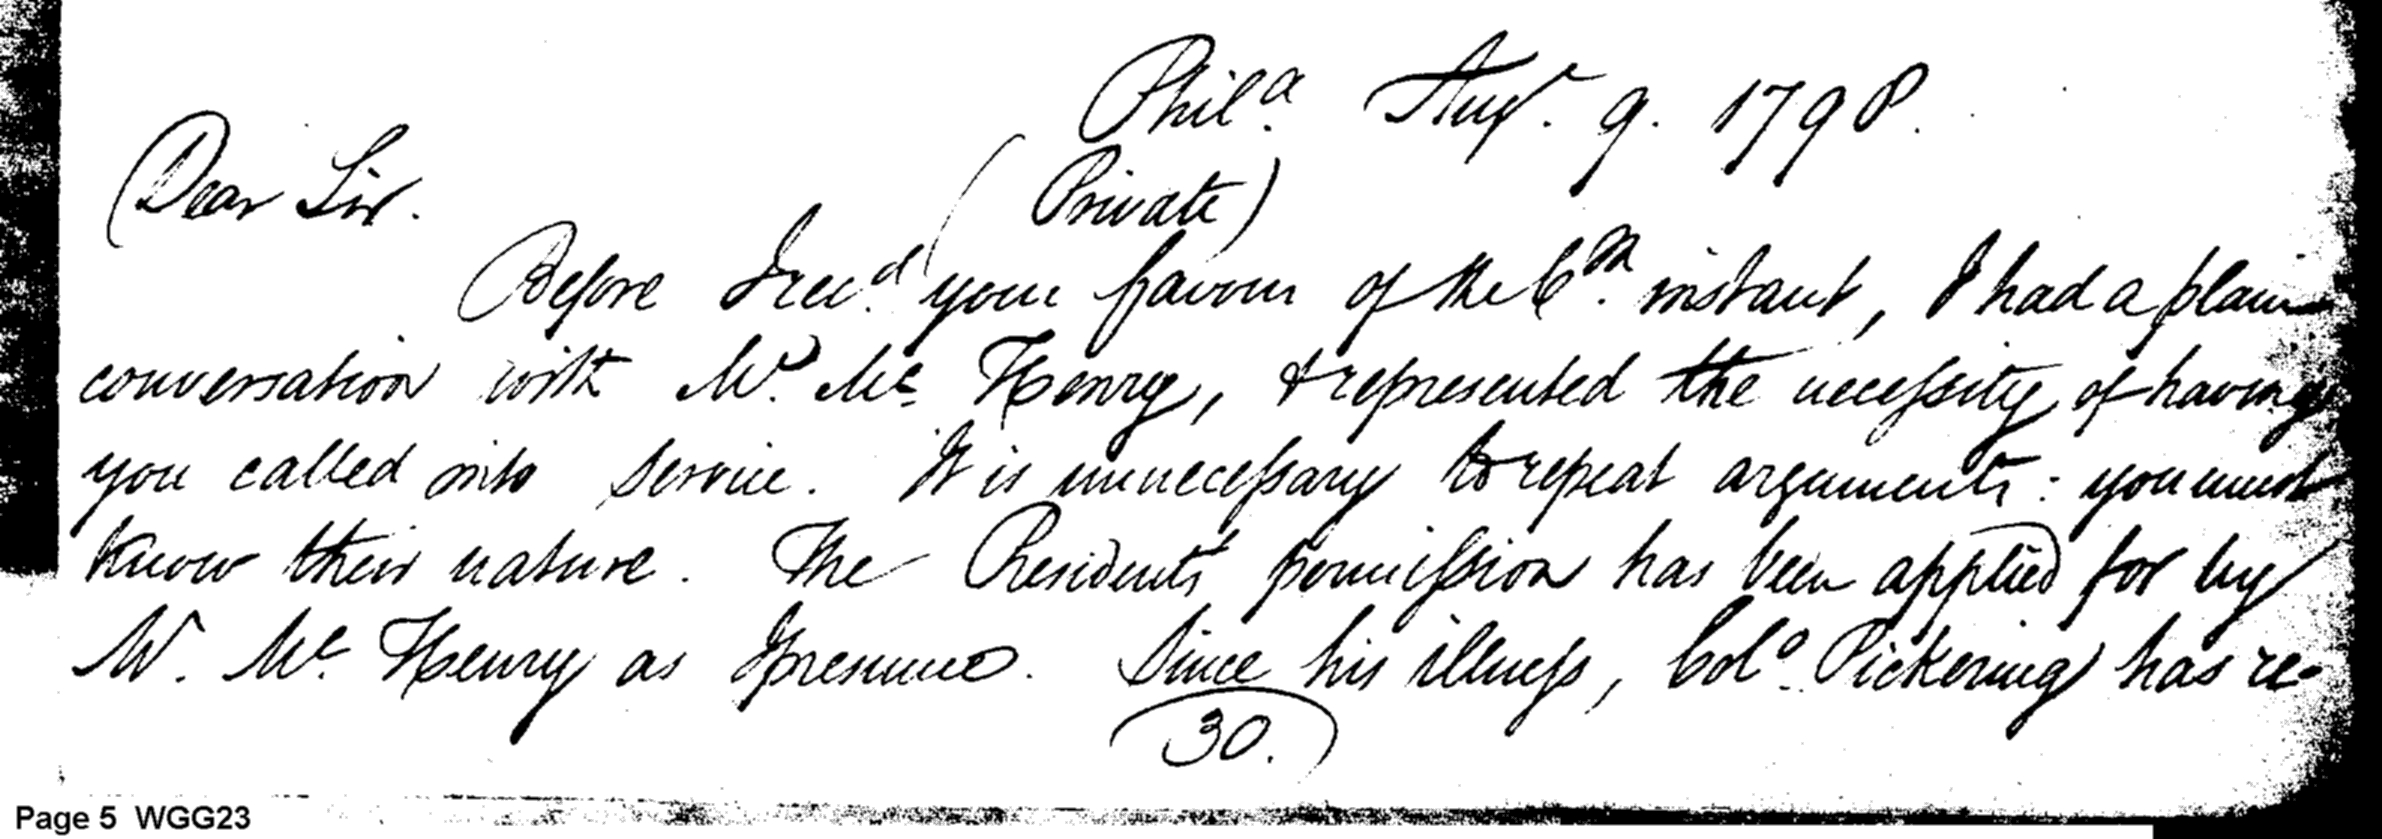 Phila. Augt. 9. 1798.
Dear Sir.
(Private)
Before I recd. your favour of the 6th. instant, I had a plain
conversation with Mr. Mc. Henry, & represented the necessity of having
you called into service. It is unnecessary to repeat arguments: you must
know their nature. The Presidents permission has been applied for by
Mr. Mc. Henry as I presume. Since his illness, Colo. Pickering has re-
30.
Page 5 WGG23